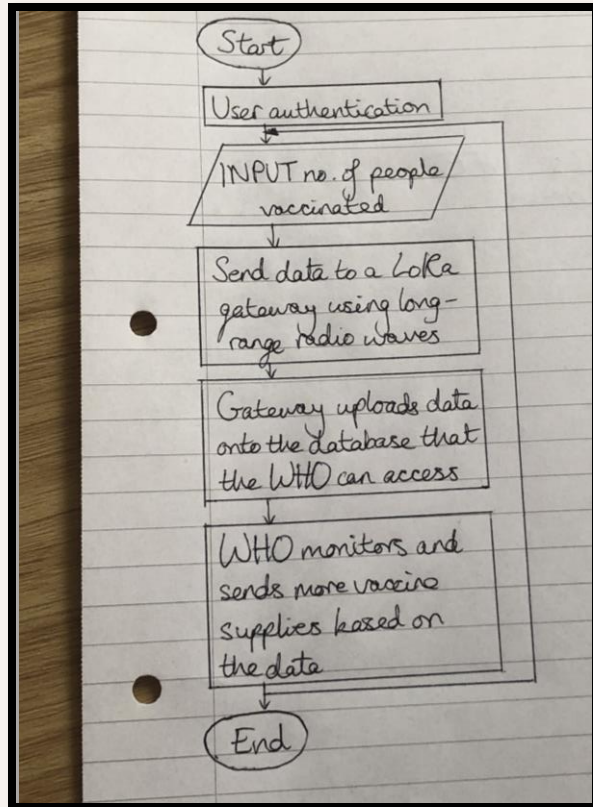 Start
User authentication
INPUT no. of people
vaccinated
Send data to a LoRa
gateway using long-
range radio waves
Gateway uploads data
onto the database that
the WHO can access
WHO monitors and
sends more vaccine
supplies based on
the data
End